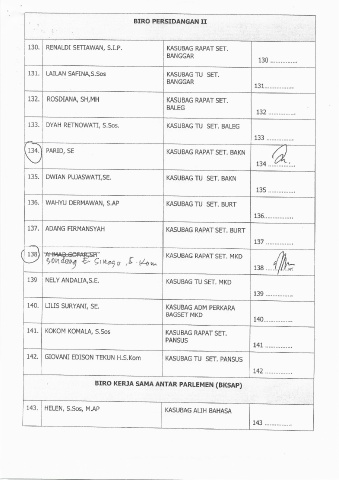 BIRO PERSIDANGAN II
130. RENALDI SETIAWAN, S.I.P. KASUBAG RAPAT SET. BANGGAR 130 ...............
131. LAILAN SAFINA,S.Sos KASUBAG TU SET. BANGGAR 131...............
132. ROSDIANA, SH,MH KASUBAG RAPAT SET. BALEG 132 ...............
133. DYAH RETNOWATI, S.Sos. KASUBAG TU SET. BALEG 133 ...............
134. PARID, SE KASUBAG RAPAT SET. BAKN 134 ...............
135. DWIAN PUJASWATI,SE. KASUBAG TU SET. BAKN 135 ...............
136. WAHYU DERMAWAN, S.AP KASUBAG TU SET. BURT 136...............
137. ADANG FIRMANSYAH KASUBAG RAPAT SET. BURT 137 ...............
138. KASUBAG RAPAT SET. MKD 138 ...............
S. Kom
139 NELY ANDALIA,S.E. KASUBAG TU SET. MKD 139 ...............
140. LILIS SURYANI, SE. KASUBAG ADM PERKARA BAGSET MKD 140...............
141. KOKOM KOMALA, S.Sos KASUBAG RAPAT SET. PANSUS 141 ...............
142. GIOVANI EDISON TEKUN H.S.Kom KASUBAG TU SET. PANSUS 142 ...............
BIRO KERJA SAMA ANTAR PARLEMEN (BKSAP)
143. HELEN, S.Sos, M.AP KASUBAG ALIH BAHASA 143 ...............